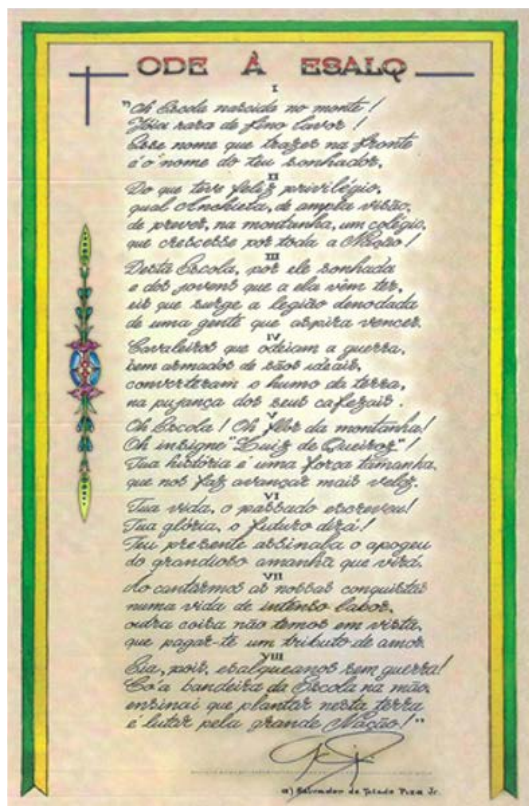 ODE À ESALQ
I
"Oh Escola nascida no monte!
Jóia rara de fino lavor!
Esse nome que trazes na fronte
é o nome do teu sonhador,
II
Do que teve feliz privilégio,
qual Anchieta, de ampla visão,
de prever, na montanha, um colégio,
que crescesse por toda a Nação!
III
Desta Escola, por ele sonhada
e dos jovens que a ela vêm ter,
eis que surge a legião denodada
de uma gente que aspira vencer.
IV
Cavaleiros que odeiam a guerra,
bem armados de sãos ideais,
converteram o humo da terra,
na pujança dos seus cafezais.
V
Oh Escola! Oh flor da montanha!
Oh insigne "Luiz de Queiroz"!
Tua história é uma força tamanha,
que nos faz avançar mais veloz.
VI
Tua vida, o passado escreveu!
Tua glória, o futuro dirá!
Teu presente assinala o apogeu
do grandioso amanhã que virá.
VII
Ao cantarmos as nossas conquistas
numa vida de intenso labor,
outra coisa não temos em vista,
que pagar-te um tributo de amor.
VIII
Eia, pois, esalqueanos sem guerra!
Co'a bandeira da Escola na mão,
ensinai que plantar nesta terra
é lutar pela grande Nação!"
a) Salvador de Toledo Piza Jr.